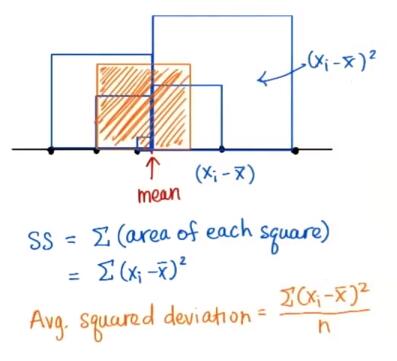 (xᵢ - x̄)²
(xᵢ - x̄)
mean
SS = Σ (area of each square)
= Σ (xᵢ - x̄)²
Avg. squared deviation = Σ(xᵢ - x̄)² / n